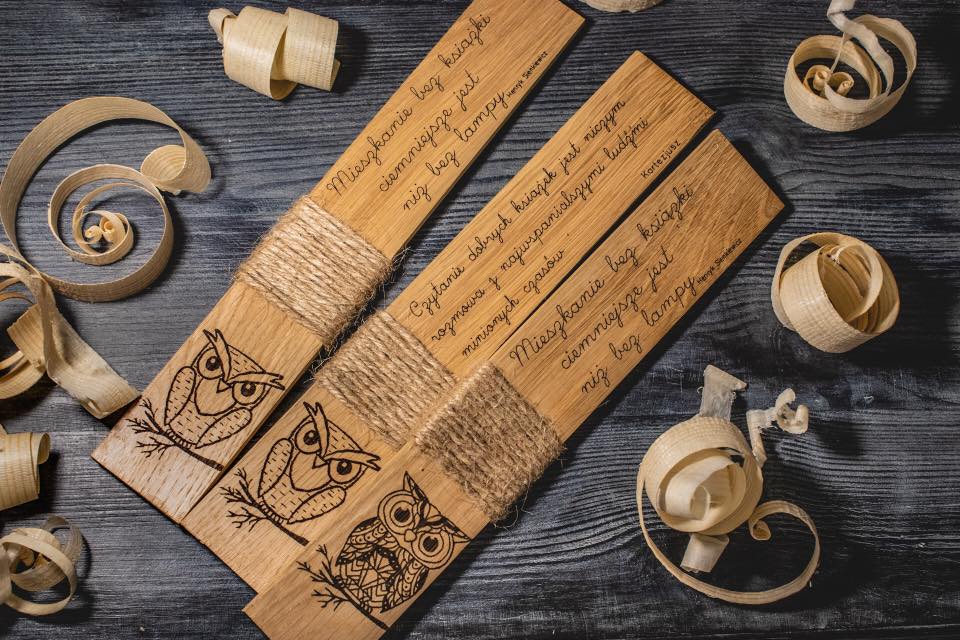 Mieszkanie bez książki
ciemniejsze jest
niż bez lampy
Henryk Sienkiewicz
Czytanie dobrych książek jest niczym
rozmowa z najwspanialszymi ludźmi
minionych czasów
Kartezjusz
Mieszkanie bez książki
ciemniejsze jest
niż bez lampy
Henryk Sienkiewicz